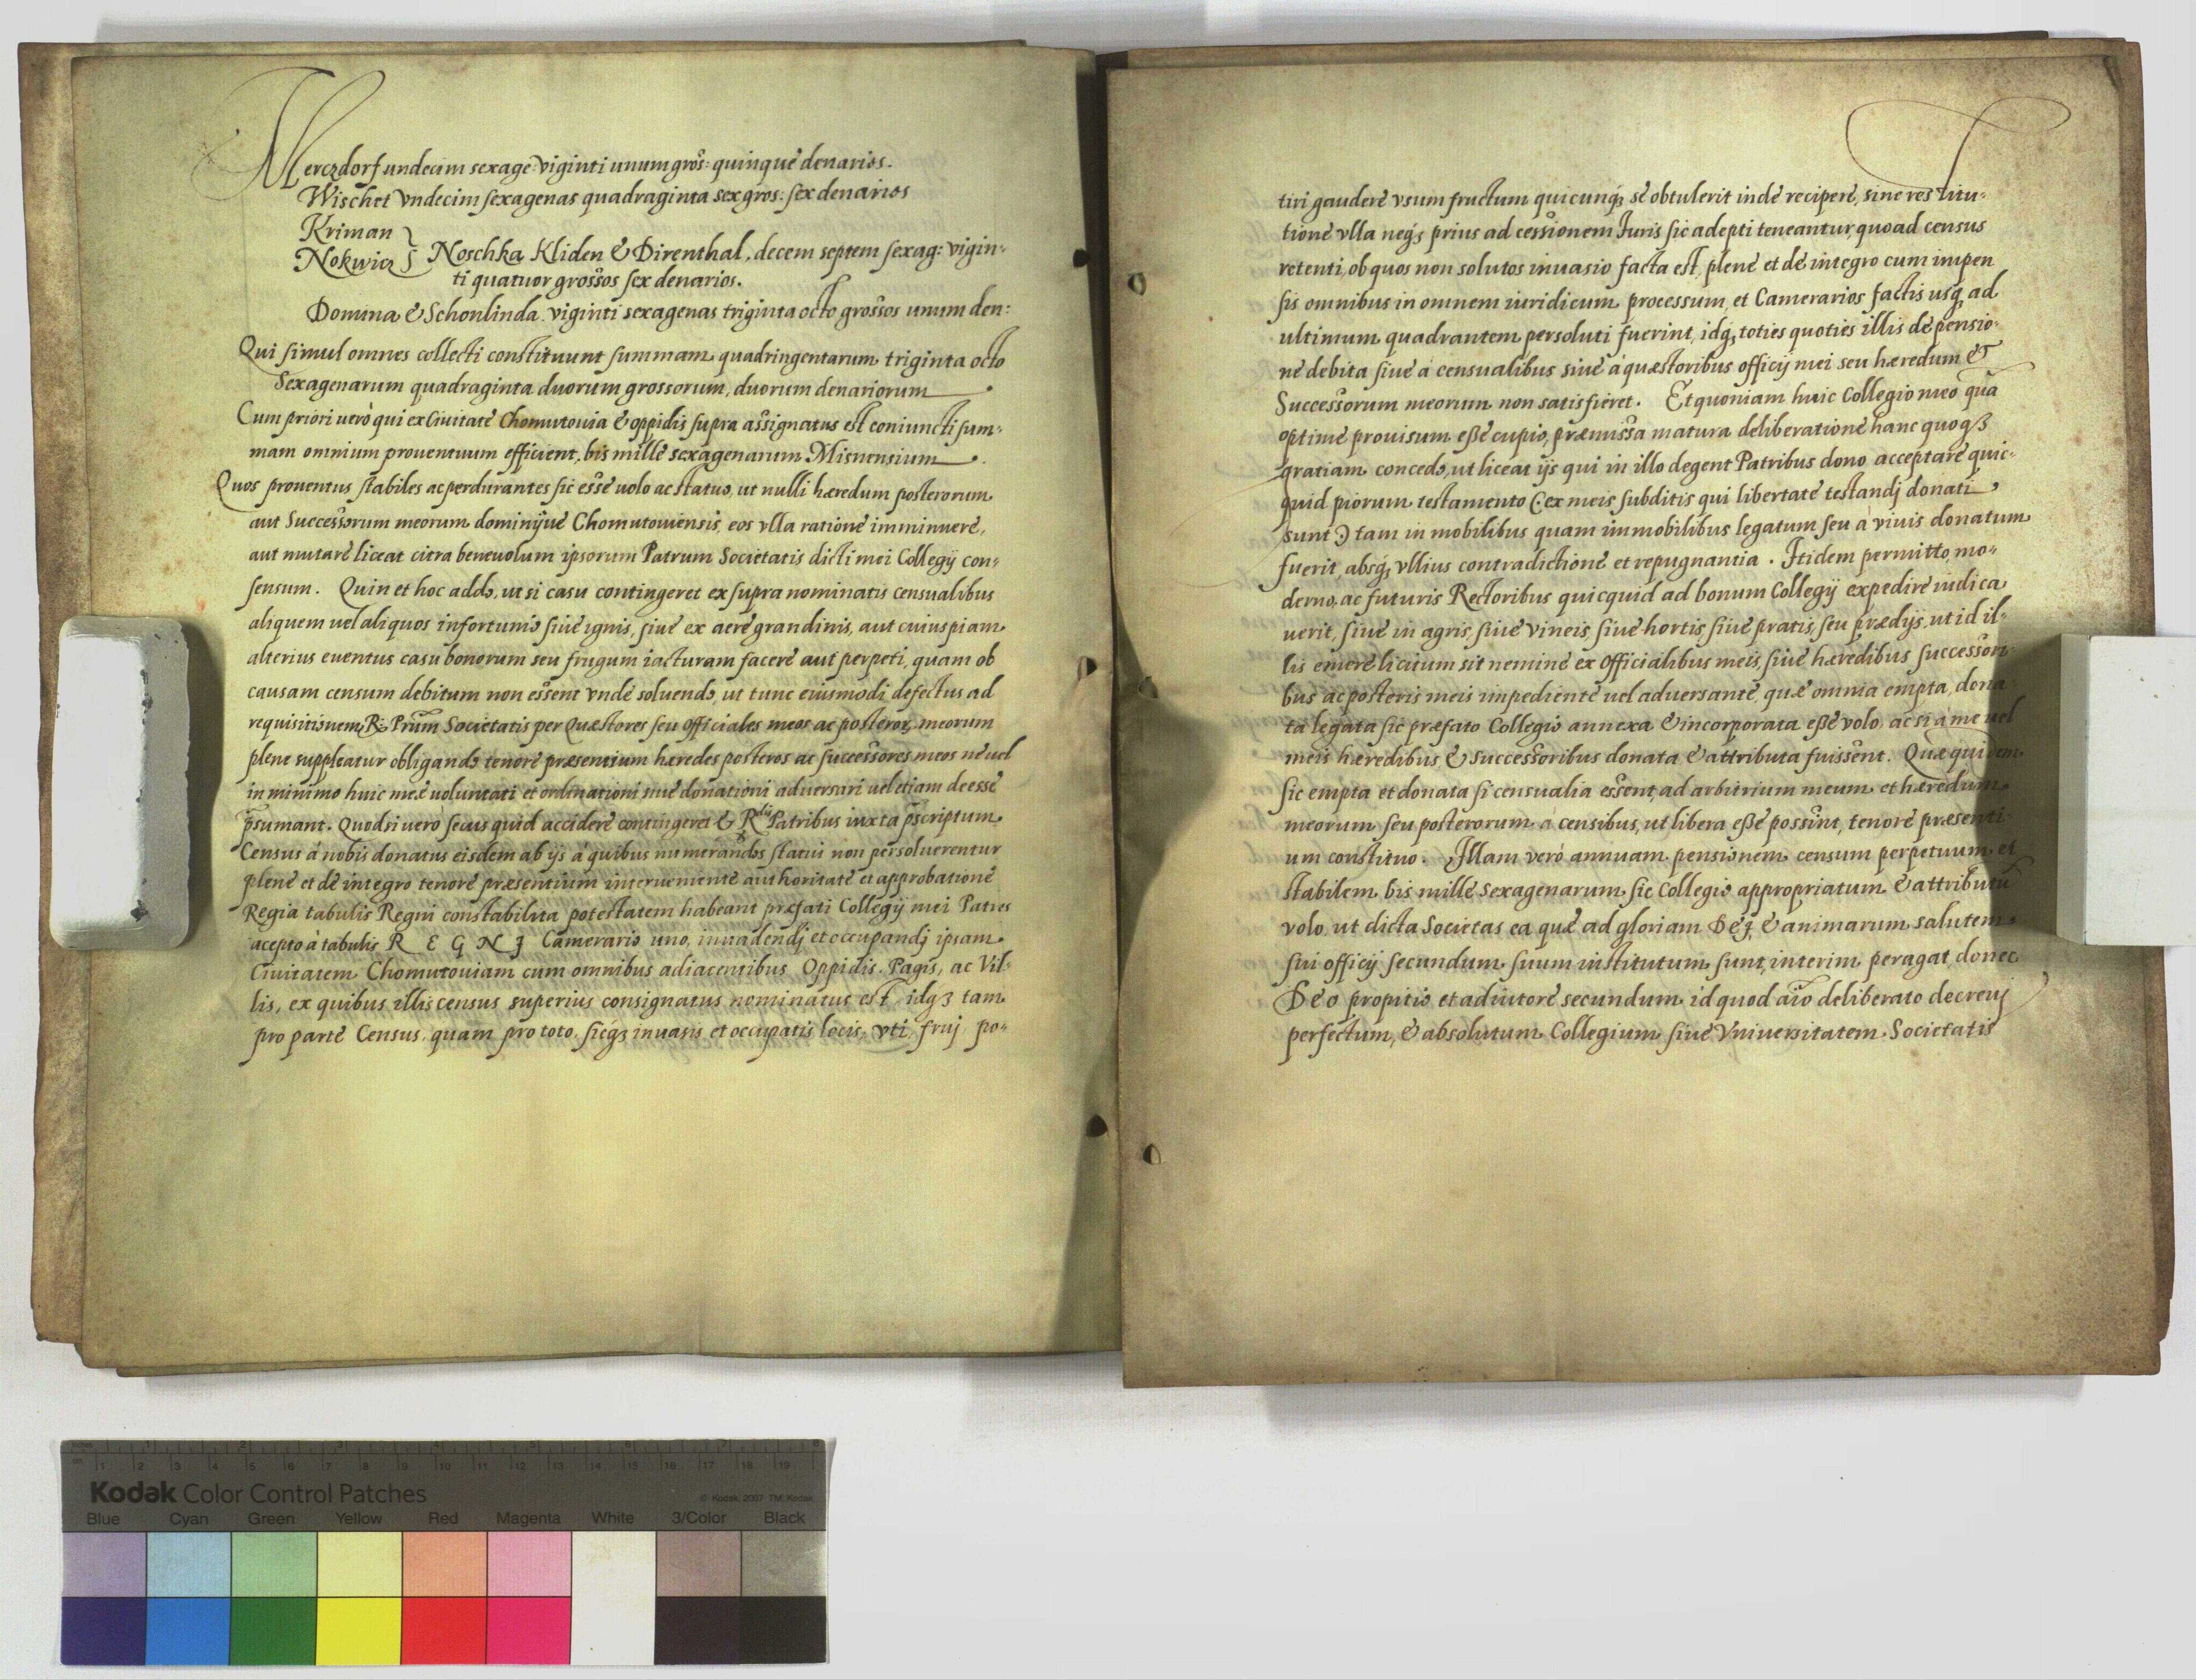 Merczdorf undecim sexage viginti unum gros: quinque denarios.
Wischet vndecim sexagenas quadraginta sex gros: sex denarios
Kriman
Nokwicz } Noschka Kliden & Direnthal, decem septem sexag: vigin-
ti quatuor grossos sex denarios.
Domina & Schonlinda viginti sexagenas triginta octo grossos unum den:
Qui simul omnes collecti constituunt summam quadringentarum triginta octo
Sexagenarum quadraginta duorum grossorum, duorum denariorum.
Cum priori uerò qui ex Ciuitate Chomutouia & oppidis supra assignatus est coniuncti sum-
mam omnium prouentuum efficient, bis mille sexagenarum Misnensium.
Quos prouentus stabiles ac perdurantes sic esse uolo ac statuo, ut nulli hæredum posterorum
aut Successorum meorum dominijue Chomutouiensis, eos vlla ratione imminuere,
aut mutare liceat citra beneuolum ipsorum Patrum Societatis dicti mei Collegij con-
sensum. Quin et hoc addo, ut si casu contingeret ex supra nominatis censualibus
aliquem uel aliquos infortunio siue ignis, siue ex aere grandinis, aut cuiuspiam
alterius euentus casu bonorum seu frugum iacturam facere aut perpeti, quam ob
causam censum debitum non essent vnde soluendo, ut tunc eiusmodi defectus ad
requisitionem R. Prum Societatis per Quæstores seu Officiales meos ac posteror, meorum
plene suppleatur obligando tenore præsentium hæredes posteros ac successores meos ne uel
in minimo huic meæ uoluntati et ordinationi siue donationi aduersari uel etiam deesse
p̃sumant. Quod si uero secus quid accidere contingeret & R.dis Patribus iuxta p̃scriptum
Census à nobis donatus eisdem ab ijs à quibus numerandos statui non persoluerentur
plene et de integro tenore præsentium interueniente authoritate et approbatione
Regia tabulis Regni constabilita potestatem habeant præfati Collegij mei Patres
acepto à tabulis R E G N J Camerario uno, inuadendj et occupandj ipsam
Ciuitatem Chomutouiam cum omnibus adiacentibus Oppidis. Pagis, ac Vil-
lis, ex quibus illis census superius consignatus nominatus est idqȝ tam
pro parte Census, quam pro toto, sicqȝ inuasis et occupatis locis, vti, fruj, po-
tiri gaudere vsum fructum quicunqȝ se obtulerit inde recipere, sine restitu-
tione vlla neqȝ prius ad cessionem Iuris sic adepti teneantur, quoad census
retenti, ob quos non solutos inuasio facta est, plene et de integro cum impen
sis omnibus in omnem iuridicum processum, et Camerarios factis usqȝ ad
ultimum quadrantem persoluti fuerint, idqȝ toties quoties illis de pensio-
ne debita siue à censualibus siue à quæstoribus officij mei seu hæredum &
Successorum meorum non satisfieret. Et quoniam huic Collegio meo quã
optime prouisum esse cupio, præmissa matura deliberatione hanc quoqȝ
gratiam concedo, ut liceat ijs qui in illo degent Patribus dono acceptare quic-
quid piorum testamento (: ex meis subditis qui libertate testandj donati
sunt :) tam in mobilibus quam immobilibus legatum seu à viuis donatum
fuerit, absqȝ vllius contradictione et repugnantia. Itidem permitto mo-
derno, ac futuris Rectoribus quicquid ad bonum Collegij expedire iudica
uerit, siue in agris, siue vineis, siue hortis, siue pratis, seu prædijs, ut id il-
lis emere licitum sit nemine ex Officialibus meis, siue hæredibus successori-
bus ac posteris meis impediente uel aduersante, quæ omnia empta, dona
ta legata sic præfato Collegio annexa & incorporata esse volo, ac si à me uel
meis hæredibus, & Successoribus donata & attributa fuissent. Quæ quidem
sic empta et donata si censualia essent, ad arbitrium meum et hæredum
meorum seu posterorum a censibus, ut libera esse possint, tenore præsenti
um constituo. Illam verò annuam pensionem censum perpetuum et
stabilem bis mille Sexagenarum sic Collegio appropriatum & attributũ
volo, ut dicta Societas ea quæ ad gloriam DEJ, & animarum salutem
sui officij secundum suum institutum sunt, interim peragat, donec
Deo propitio et adiutore secundum id quod aĩo deliberato decreuj
perfectum, & absolutum Collegium siue Vniuersitatem Societatis
inches
cm
1 2 3 4 5 6 7 8 9 10 11 12 13 14 15 16 17 18 19
Kodak Color Control Patches
© Kodak, 2007 TM: Kodak
Blue Cyan Green Yellow Red Magenta White 3/Color Black